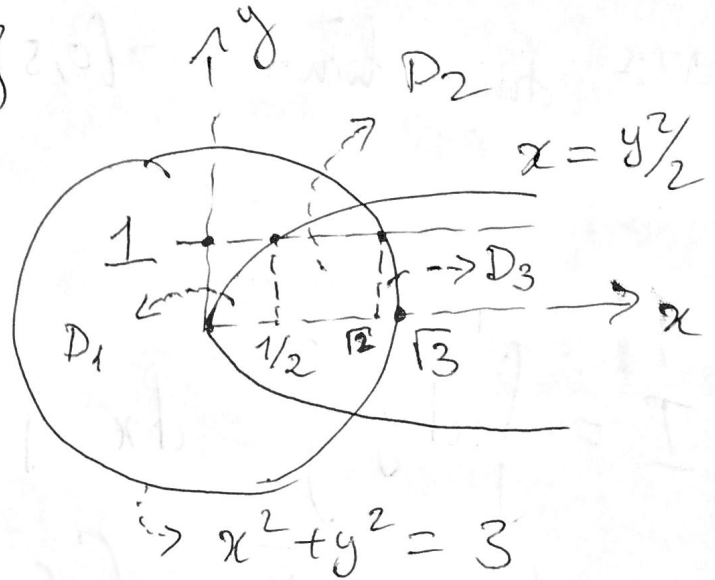 }
y
D2
x = y²/2
1
D3
x
D1
1/2
√2
√3
x² + y² = 3